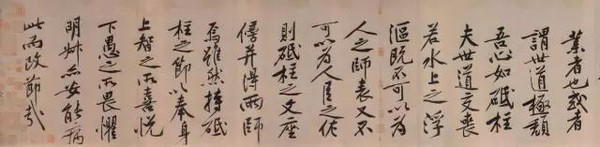 業者也或者
謂世道極頹
吾心如砥柱
夫世道交喪
若水上之浮
漚既不可以為
人之師表又不
可以為人臣之佐
則砥柱之文座
傍并得兩師
焉雖然持砥
柱之節以奉身
上智之所喜悅
下愚之所畏懼
明叔亦安能病
此而改節哉